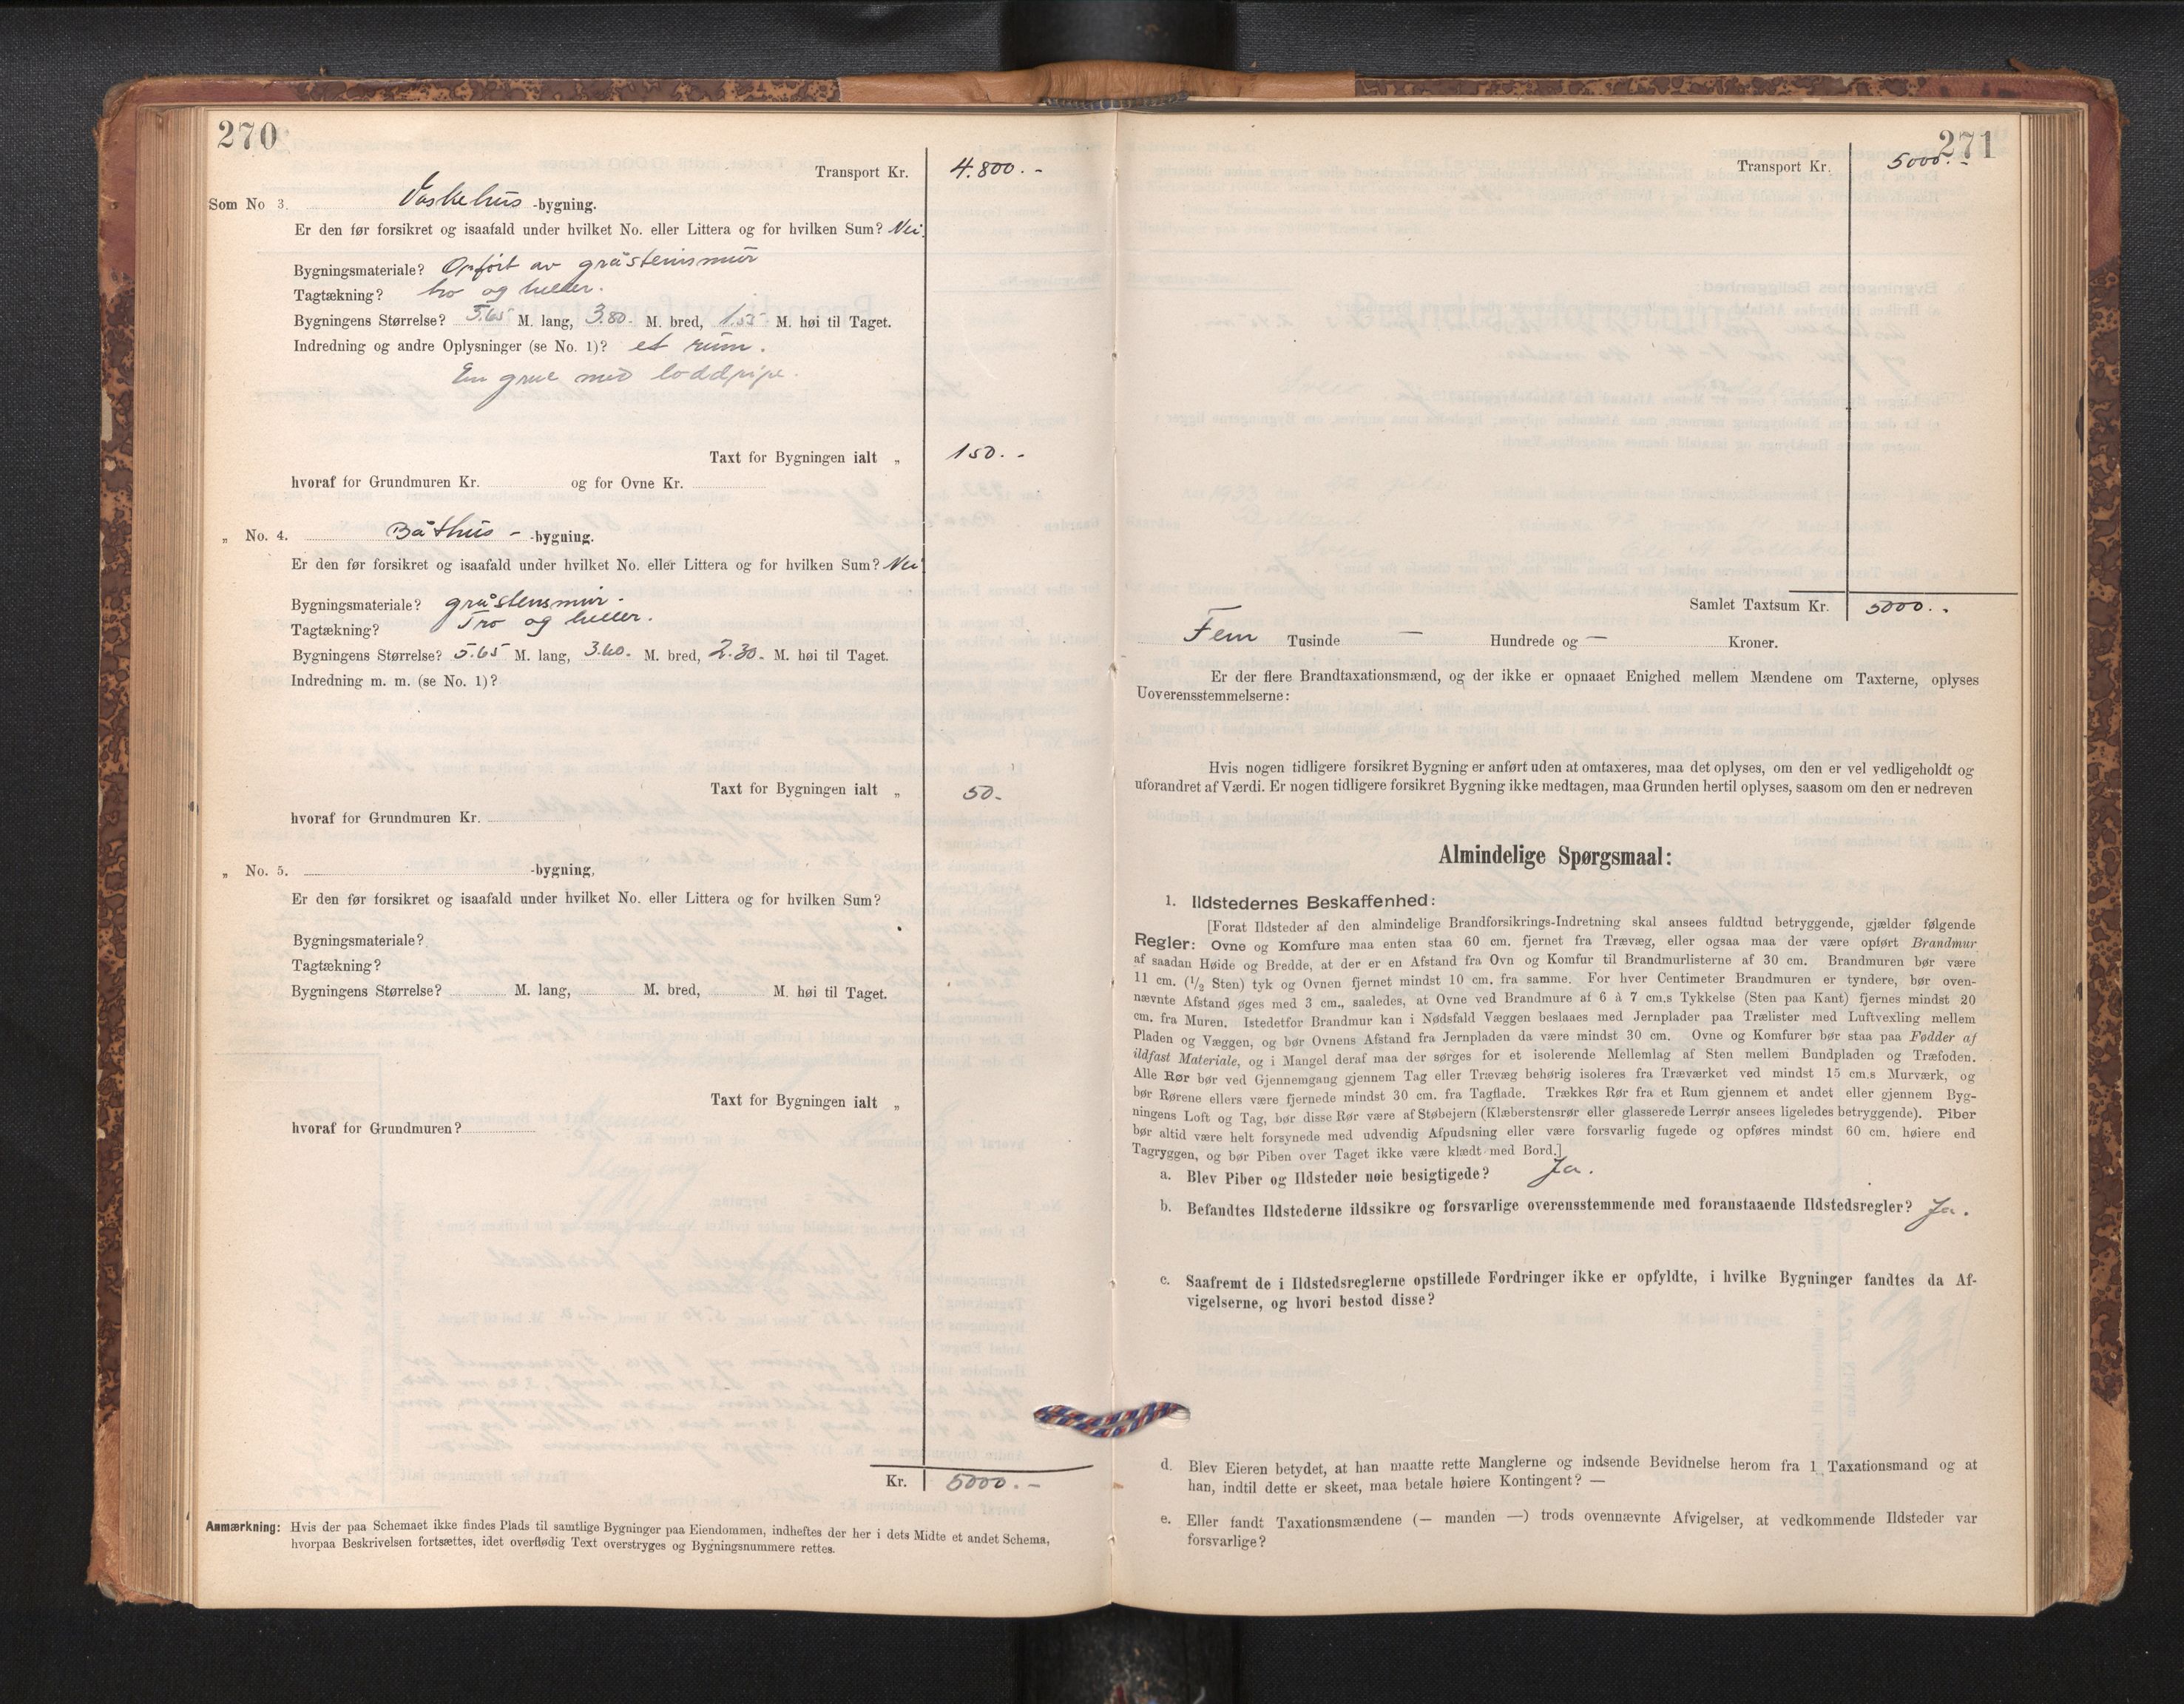 270
Transport Kr. 4.800.-
Som No 3. Vaskehus -bygning.
Er den før forsikret og isaafald under hvilket No. eller Littera og for hvilken Sum? Nei.
Bygningsmateriale? Opført av gråstensmur
Tagtækning? tro og heller.
Bygningens Størrelse? 5.65 M. lang, 3.80- M. bred, 1.55 M. høi til Taget.
Indredning og andre Oplysninger (se No. 1)? et rum.
En grue med loddpipe.
Taxt for Bygningen ialt „ 150.-
hvoraf for Grundmuren Kr. og for Ovne Kr.
„ No. 4. Båthus - -bygning.
Er den før forsikret og isaafald under hvilket No. eller Littera og for hvilken Sum? Nei
Bygningsmateriale? gråstensmur.
Tagtækning? Tro og heller.
Bygningens Størrelse? 5.65 M. lang, 3.60- M. bred, 2.30- M. høi til Taget.
Indredning m. m. (se No. 1)?
Taxt for Bygningen ialt „ 50-
hvoraf for Grundmuren Kr.
„ No. 5. -bygning,
Er den før forsikret og isaafald under hvilket No. eller Littera og for hvilken Sum?
Bygningsmateriale?
Tagtækning?
Bygningens Størrelse? M. lang, M. bred, M. høi til Taget.
Taxt for Bygningen ialt „
hvoraf for Grundmuren?
Kr. 5000.-
Anmærkning: Hvis der paa Schemaet ikke findes Plads til samtlige Bygninger paa Eiendommen, indheftes der her i dets Midte et andet Schema,
hvorpaa Beskrivelsen fortsættes, idet overflødig Text overstryges og Bygningsnummere rettes.
271
Transport Kr. 5000.-
Samlet Taxtsum Kr. 5000.-
Fem Tusinde — Hundrede og — Kroner.
Er der flere Brandtaxationsmænd, og der ikke er opnaaet Enighed mellem Mændene om Taxterne, oplyses
Uoverensstemmelserne:
Hvis nogen tidligere forsikret Bygning er anført uden at omtaxeres, maa det oplyses, om den er vel vedligeholdt og
uforandret af Værdi. Er nogen tidligere forsikret Bygning ikke medtagen, maa Grunden hertil oplyses, saasom om den er nedreven
Almindelige Spørgsmaal:
1. Ildstedernes Beskaffenhed:
[Forat Ildsteder af den almindelige Brandforsikrings-Indretning skal ansees fuldtud betryggende, gjælder følgende
Regler: Ovne og Komfure maa enten staa 60 cm. fjernet fra Trævæg, eller ogsaa maa der være opført Brandmur
af saadan Høide og Bredde, at der er en Afstand fra Ovn og Komfur til Brandmurlisterne af 30 cm. Brandmuren bør være
11 cm. (1/2 Sten) tyk og Ovnen fjernet mindst 10 cm. fra samme. For hver Centimeter Brandmuren er tyndere, bør oven-
nævnte Afstand øges med 3 cm., saaledes, at Ovne ved Brandmure af 6 à 7 cm.s Tykkelse (Sten paa Kant) fjernes mindst 20
cm. fra Muren. Istedetfor Brandmur kan i Nødsfald Væggen beslaaes med Jernplader paa Trælister med Luftvexling mellem
Pladen og Væggen, og bør Ovnens Afstand fra Jernpladen da være mindst 30 cm. Ovne og Komfurer bør staa paa Fødder af
ildfast Materiale, og i Mangel deraf maa der sørges for et isolerende Mellemlag af Sten mellem Bundpladen og Træfoden.
Alle Rør bør ved Gjennemgang gjennem Tag eller Trævæg behørig isoleres fra Træværket ved mindst 15 cm.s Murværk, og
bør Rørene ellers være fjernede mindst 30 cm. fra Tagflade. Trækkes Rør fra et Rum gjennem et andet eller gjennem Byg-
ningens Loft og Tag, bør disse Rør være af Støbejern (Klæberstensrør eller glasserede Lerrør ansees ligeledes betryggende). Piber
bør altid være helt forsynede med udvendig Afpudsning eller være forsvarlig fugede og opføres mindst 60 cm. høiere end
Tagryggen, og bør Piben over Taget ikke være klædt med Bord.]
a. Blev Piber og Ildsteder nøie besigtigede? Ja.
b. Befandtes Ildstederne ildssikre og forsvarlige overensstemmende med foranstaaende Ildstedsregler? Ja.
c. Saafremt de i Ildstedsreglerne opstillede Fordringer ikke er opfyldte, i hvilke Bygninger fandtes da Af-
vigelserne, og hvori bestod disse?
d. Blev Eieren betydet, at han maatte rette Manglerne og indsende Bevidnelse herom fra 1 Taxationsmand og at
han, indtil dette er skeet, maa betale høiere Kontingent? —
e. Eller fandt Taxationsmændene (— manden —) trods ovennævnte Afvigelser, at vedkommende Ildsteder var
forsvarlige?